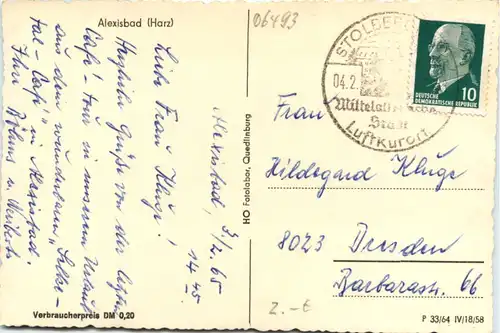 Alexisbad (Harz)
06493
Alexisbad, 3/2. 65
14 45
Liebe Frau Kluge!
Herzliche Grüße von der
Café-Tour in unserem Urlaub
aus dem wunderbaren
tal-Café" in Alexisbad.
Ihre
Verbraucherpreis DM 0,20
HO Fotolabor, Quedlinburg
STOLBERG
04.2.
Mittelalterliche
Stadt
Luftkurort
10
DEUTSCHE
DEMOKRATISCHE REPUBLIK
Frau
Hildegard Kluge
8023 Dresden
Barbarastr. 66
2.-€
P 33/64 IV/18/58